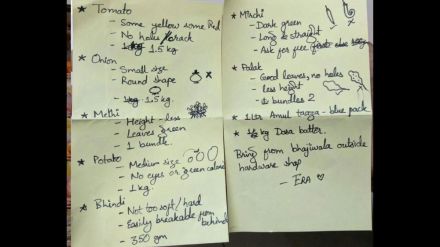 * Tomato
- Some yellow some Red
- No holes / crack
- 1.5 kg
* Onion
- Small size
- Round shape
- 1.5 kg.
* Methi
- Height - less
- Leaves green
- 1 bundle.
* Potato
- Medium size
- No eyes or green colour
- 1 kg.
* Bhindi
- Not too soft / hard
- Easily breakable from behind
- 350 gm
* Mirchi
- Dark green
- Long & straight
- Ask for free
* Palak
- Good leaves, no holes
- less height
- bundles 2
* 1 ltr Amul taaza - blue pack
* kg Dosa batter.
Bring from bhajiwala outside
hardware shop
- ERA